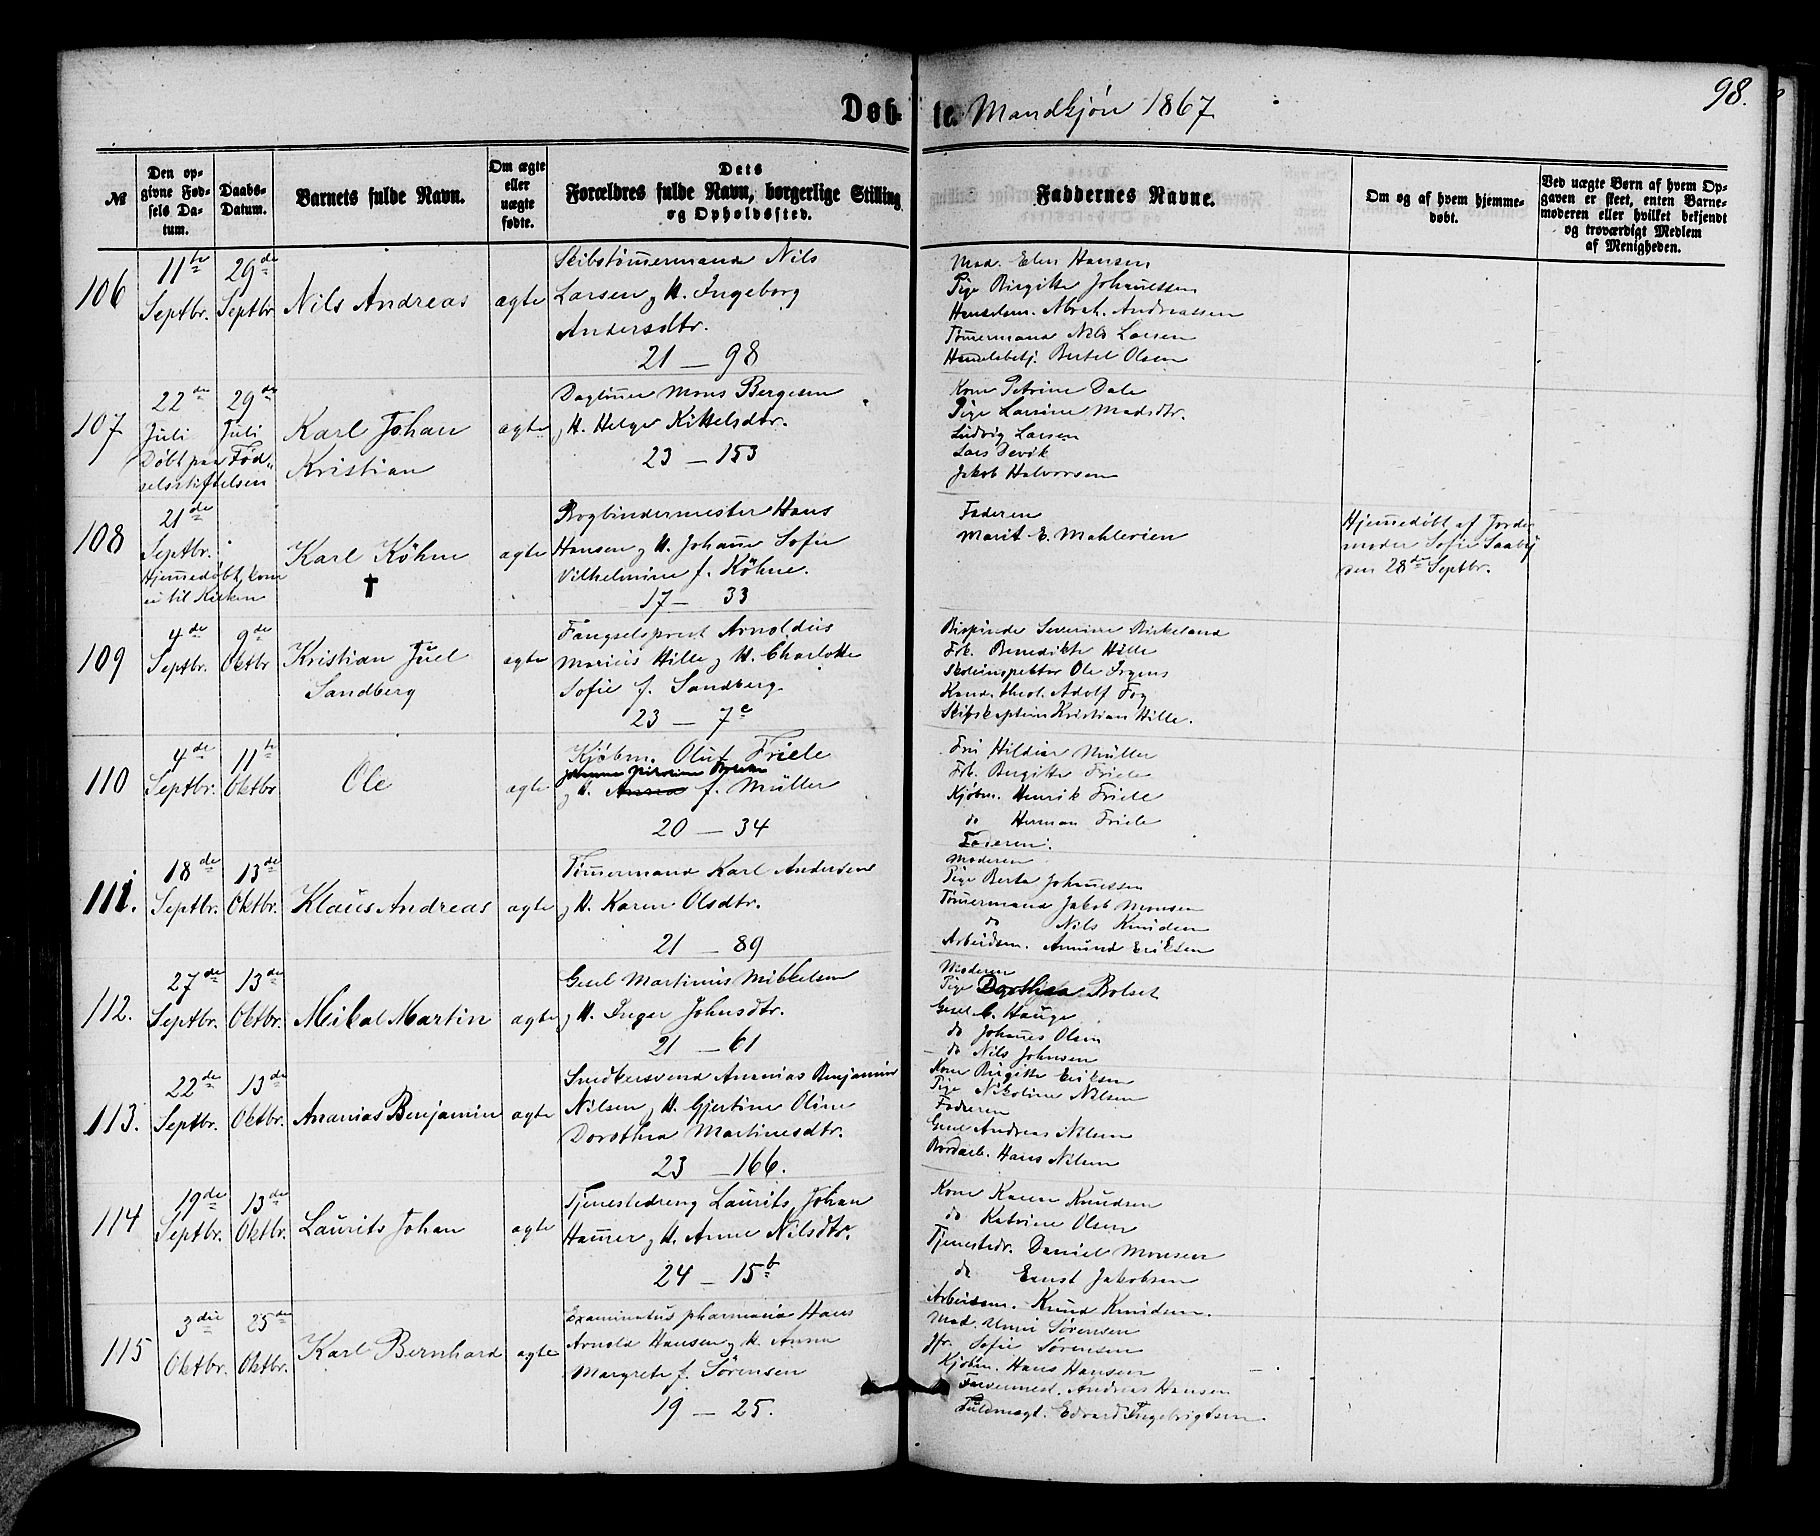 98.
Døbte. Mandkjön 1867
№
Den opgivne Fødsels Datum.
Daabs-Datum.
Barnets fulde Navn.
Om ægte eller uægte fødte.
Dets Forældres fulde Navn, borgerlige Stilling og Opholdssted.
Faddernes Navne.
Om og af hvem hjemmedøbt.
Ved uægte Børn af hvem Opgaven er skeet, enten Barnemoderen eller hvilket bekjendt og troværdigt Medlem af Menigheden.
106
11te Septbr.
29de Septbr
Nils Andreas
ægte
Skibstömermand Nils
Larsen og H. Ingeborg
Andersdtr.
21 — 98
Mad. Elen Hansen
Pige Birgitte Johanessen
Handelsm. Abrah. Andreassen
Tömermand Nils Larsen
Handelsbetj. Bertel Olsen
107
22de Juli
29de Juli
Döbt paa Föd„
selsstiftelsen
Karl Johan
Kristian
ægte
Daglöner Mons Bergesen
og H. Helge Kittelsdtr.
23 — 153
Kone Petrine Dale
Pige Larsine Madsdtr.
Ludvig Larsen
Lars Devik
Jakob Halvorsen
108
21de
Septbr.
Hjemedöbt, kom
ei til Kirken
Karl Köhne
†
ægte
Bogbindermester Hans
Hansen og H. Johanne Sofie
Vilhelmine f. Köhne.
17 — 33
Faderen
Marit E. Mahlerien
Hjemedöbt af Jorde
moder Sofie Saaby
den 28de Septbr.
109
4de Septbr.
9de Oktbr
Kristian Juel
Sandberg
ægte
Fangselsprest Arnoldus
Marius Hille og H. Charlotte
Sofie f. Sandberg.
23 — 7c
Bispinde Severine Birkeland
Frk. Benedikte Hille
Skoleinspektör Ole Irgens
Kand. theol. Adolf Fog
Skibskaptein Kristian Hille.
110
4de Septbr.
11te Oktbr
Ole
ægte
Kjöbm. Oluf Friele
og H. Anna f. Müller
20 — 34
Fru Hildur Müller
Frk. Birgitte Friele
Kjöbm. Henrik Friele
do Herman Friele
Faderen.
111.
18de Septbr.
13de Oktbr.
Klaus Andreas
ægte
Tömermand Karl Andersen
og H. Karen Olsdtr.
21 — 89
Moderen
Pige Berta Johanessen
Tömermand Jakob Monsen
do Nils Knudsen
Arbeidsm. Amund Eriksen
112.
27de Septbr.
13de Oktbr.
Mikal Martin
ægte
Gesel Martinus Mikkelsen
og H. Inger Johnsdtr.
21 — 61
Moderen
Pige Dorthea Bolset
Gesel C. Hauge
do Johanes Olsen
do Nils Johnsen
113.
22de Septbr.
13de Oktbr.
Ananias Benjamin
ægte
Snedkersvend Ananias Benjamin
Nilsen og H. Gjertine Oline
Dorothea Martinesdtr.
23 — 166.
Kone Birgitte Eriksen
Pige Nikoline Nilsen
Faderen
Gesel Andreas Nilsen
Bordarb. Hans Nilsen
114
19de Septbr.
13de Oktbr.
Laurits Johan
ægte
Tjenestedreng Laurits Johan
Hauer og H. Anne Nilsdtr.
24 — 15b
Kone Karen Knudsen
do Katrine Olsen
Tjenestedr. Daniel Monsen
do Ernst Jakobsen
Arbeidsm. Knud Knudsen.
115
3die Oktbr.
25de Oktbr.
Karl Bernhard
ægte
Examinatus pharmacia Hans
Arnold Hansen og H. Anna
Margrete f. Sörensen
19 — 25.
Mad. Unni Sörensen
Jfr. Sofie Sörensen
Kjöbm. Hans Hansen
Farvermest. Andreas Hansen
Fuldmægt. Edvard Ingebrigtsen